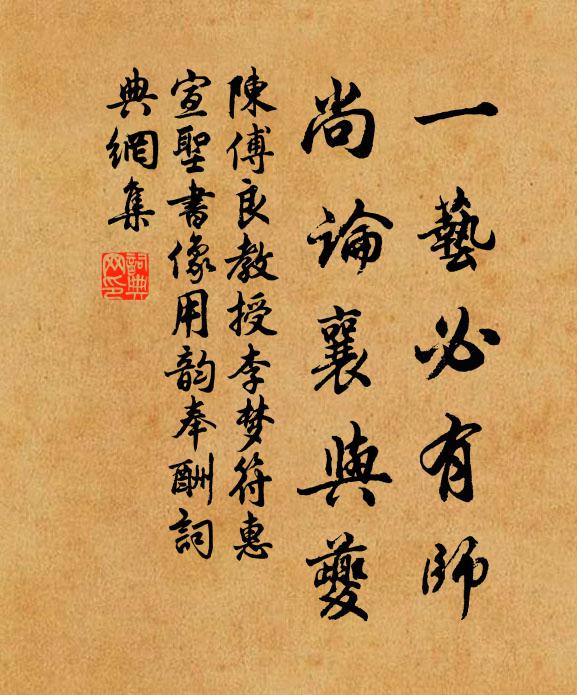 一藝必有師
尚論襄與夔
陳傅良教授李梦符惠
宣聖書像用韵奉酬詞
典網集
詞典
网印